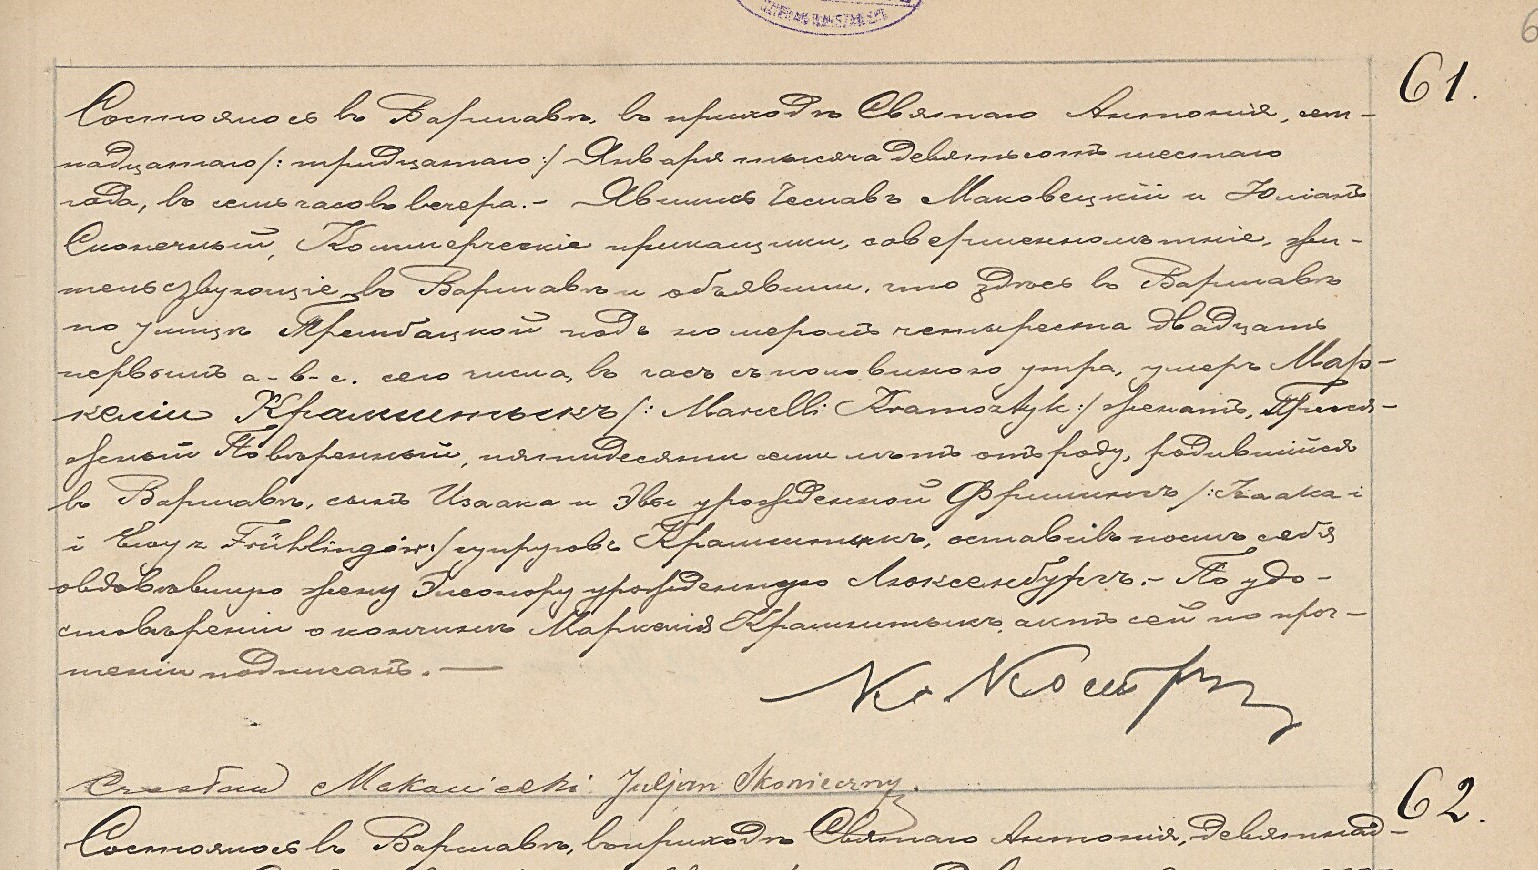 61.
Состоялось въ Варшавѣ, въ приходѣ Святаго Антонія, сем-
надцатаго /: тридцатаго :/ Января тысяча девятьсотъ шестаго
года, въ семь часовъ вечера. - Явились Чеславъ Маковецкій и Юліанъ
Сконечный, Коммерческіе прикащики, совершеннолѣтніе, жи-
тельствующіе въ Варшавѣ и объявили, что здѣсь въ Варшавѣ
по улицѣ Трембацкой подъ номеромъ четыреста двадцать
первымъ а-в-с. сего числа, въ часъ съ половиною утра, умеръ Мар-
келій Крамштыкъ /: Marcelli Kramsztyk :/ женатъ, Прися-
жный Повѣренный, пятидесяти семи лѣтъ отъ роду, родившійся
въ Варшавѣ, сынъ Изаака и Эвы урожденной Фрилингъ /: Izaaka i
i Ewy z Frühlingów :/ супруговъ Крамштыкъ, оставивъ послѣ себя
овдовѣвшую жену Элеонору урожденную Люксенбургъ. - По удо-
стовѣреніи о кончинѣ Маркелія Крамштыкъ, актъ сей по про-
теніи подписанъ. —
Czesław Makowiecki Juljan Skonieczny
62.
Состоялось въ Варшавѣ, въ приходѣ Святаго Антонія, девятнад-